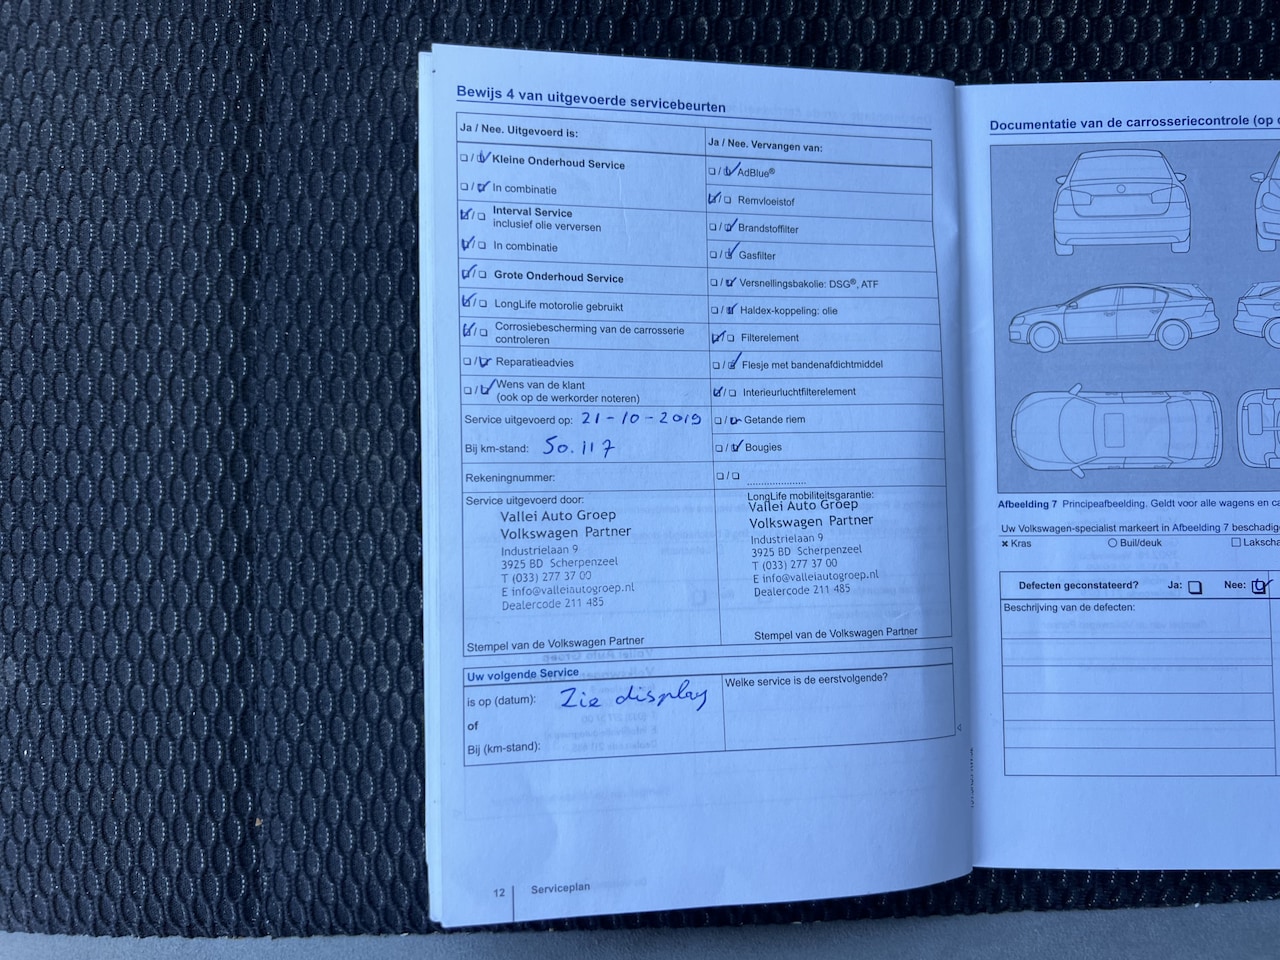 Bewijs 4 van uitgevoerde servicebeurten
Ja / Nee. Uitgevoerd is:
Kleine Onderhoud Service
In combinatie
Interval Service
inclusief olie verversen
In combinatie
Grote Onderhoud Service
LongLife motorolie gebruikt
Corrosiebescherming van de carrosserie
controleren
Reparatieadvies
Wens van de klant
(ook op de werkorder noteren)
Service uitgevoerd op: 21-10-2019
Bij km-stand: 50.117
Rekeningnummer:
Service uitgevoerd door:
Vallei Auto Groep
Volkswagen Partner
Industrielaan 9
3925 BD Scherpenzeel
T (033) 277 37 00
E info@valleiautogroep.nl
Dealercode 211 485
Stempel van de Volkswagen Partner
Ja / Nee. Vervangen van:
AdBlue®
Remvloeistof
Brandstoffilter
Gasfilter
Versnellingsbakolie: DSG®, ATF
Haldex-koppeling: olie
Filterelement
Flesje met bandenafdichtmiddel
Interieurluchtfilterelement
Getande riem
Bougies
LongLife mobiliteitsgarantie:
Vallei Auto Groep
Volkswagen Partner
Industrielaan 9
3925 BD Scherpenzeel
T (033) 277 37 00
E info@valleiautogroep.nl
Dealercode 211 485
Stempel van de Volkswagen Partner
Uw volgende Service
is op (datum): Zie display
of
Bij (km-stand):
Welke service is de eerstvolgende?
12 Serviceplan
Documentatie van de carrosseriecontrole (op
Afbeelding 7 Principeafbeelding. Geldt voor alle wagens en
Uw Volkswagen-specialist markeert in Afbeelding 7
Kras Buil/deuk
Defecten geconstateerd? Ja: Nee:
Beschrijving van de defecten: